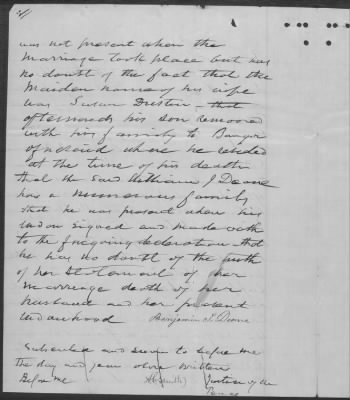 was not present when the
marriage took place but has
no doubt of the fact that the
maiden name of his wife
was Susan Dustin - that
afterwards his son removed
with his family to Bangor
aforesaid where he resided
at the time of his death
that the said William J Deane
has a numerous family
that he was present when his
widow signed and made oath
to the foregoing declaration that
he has no doubt of the truth
of her statement of her
marriage death of her
husband and her present
widowhood Benjamin S. Deane
Subscribed and sworn to before me
the day and year above written
Before me Justice of the
Peace